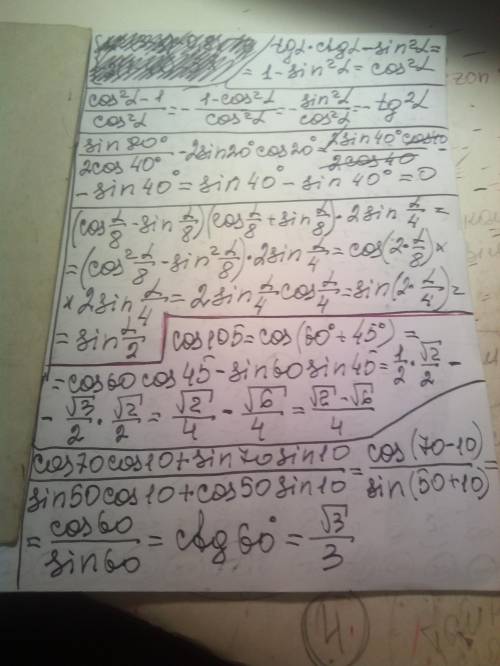 tgα·ctgα-sin²α=
=1-sin²α=cos²α
cos²α-1/cos²α=-1-cos²α/cos²α=-sin²α/cos²α=-tg²α
sin80°/2cos40°-2sin20°cos20°=2sin40°cos40/2cos40-
-sin40°=sin40°-sin40°=0
(cos α/8-sin α/8)(cos α/8+sin α/8)·2sin α/4=
=(cos² α/8-sin² α/8)·2sin α/4=cos(2·α/8)×
×2sin α/4=2sin α/4 cos α/4=sin(2·α/4)=
=sin α/2
cos105=cos(60°+45°)=
=cos60cos45-sin60sin45=1/2·√2/2-
-√3/2·√2/2=√2/4-√6/4=√2-√6/4
cos70cos10+sin70sin10/sin50cos10+cos50sin10=cos(70-10)/sin(50+10)=
=cos60/sin60=ctg60°=√3/3
4.